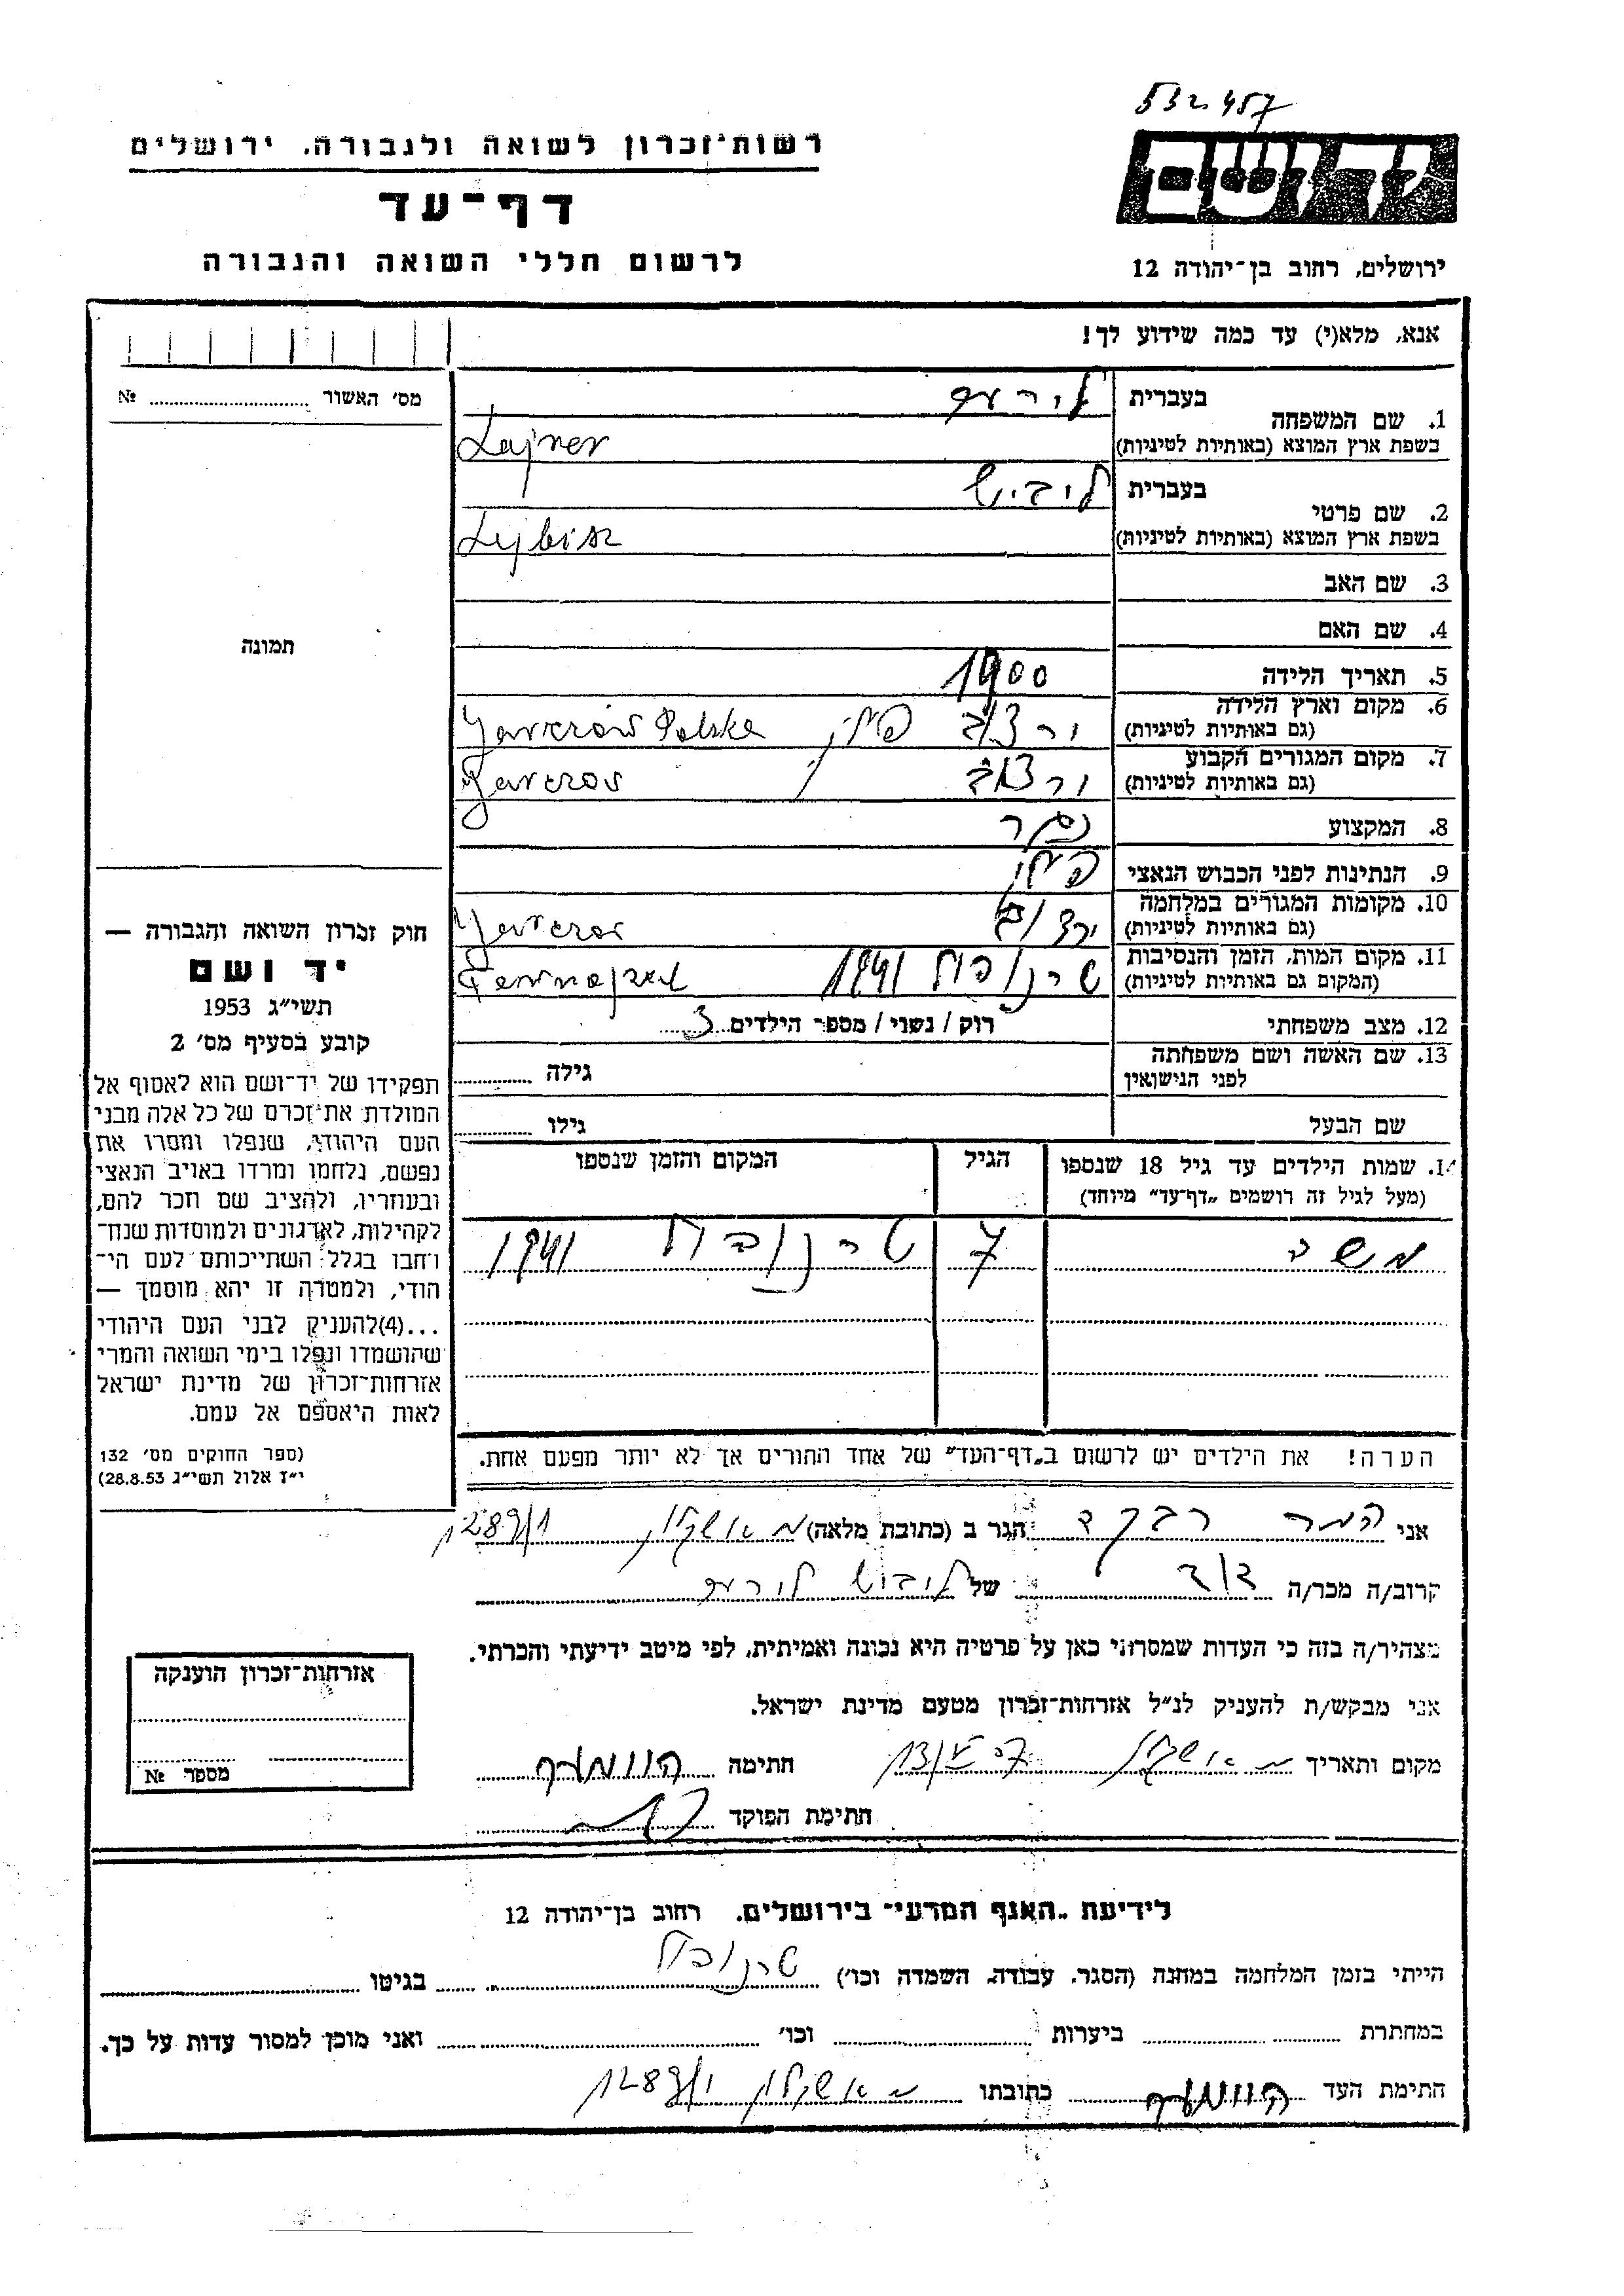 532457
רשות־זכרון לשואה ולגבורה, ירושלים
דף־עד
לרשום חללי השואה והגבורה
ידושם
ירושלים, רחוב בן־יהודה 12
אנא, מלא(י) עד כמה שידוע לך!
מס׳ האשור № 
1. שם המשפחה
בעברית
בשפת ארץ המוצא (באותיות לטיניות) Lajner
2. שם פרטי
בעברית לוביש
בשפת ארץ המוצא (באותיות לטיניות) Lejbisz
3. שם האב
4. שם האם
תמונה
5. תאריך הלידה 1900
6. מקום וארץ הלידה
(גם באותיות לטיניות) פולין Polska
7. מקום המגורים הקבוע
(גם באותיות לטיניות)
8. המקצוע
9. הנתינות לפני הכבוש הנאצי פולין
10. מקומות המגורים במלחמה
(גם באותיות לטיניות)
11. מקום המות, הזמן והנסיבות
(המקום גם באותיות לטיניות) טרנופול 1941
12. מצב משפחתי רוק / נשוי / מספר הילדים 3
13. שם האשה ושם משפחתה
לפני הנישואין גילה
שם הבעל גילו
14. שמות הילדים עד גיל 18 שנספו
(מעל לגיל זה רושמים „דף־עד״ מיוחד)
הגיל
המקום והזמן שנספו
משה 7 טרנופול 1941
הערה! את הילדים יש לרשום ב„דף־העד״ של אחד ההורים אך לא יותר מפעם אחת.
חוק זכרון השואה והגבורה —
יד ושם
תשי״ג 1953
קובע בסעיף מס׳ 2
תפקידו של יד־ושם הוא לאסוף אל
המולדת את־זכרם של כל אלה מבני
העם היהודי, שנפלו ומסרו את
נפשם, נלחמו ומרדו באויב הנאצי
ובעוזריו, ולהציב שם וזכר להם,
לקהילות, לארגונים ולמוסדות שנח־
רבו בגלל השתייכותם לעם הי־
הודי, ולמטרה זו יהא מוסמך —
...(4)להעניק לבני העם היהודי
שהושמדו ונפלו בימי השואה והמרי
אזרחות־זכרון של מדינת ישראל
לאות היאספם אל עמם.
(ספר החוקים מס׳ 132
י״ז אלול תשי״ג 28.8.53)
אני המר רבקה הגר ב (כתובת מלאה) אשקלון 1289/1
קרוב/ה מכר/ה דודה של לוביש
מצהיר/ה בזה כי העדות שמסרתי כאן על פרטיה היא נכונה ואמיתית, לפי מיטב ידיעתי והכרתי.
אני מבקש/ת להעניק לנ״ל אזרחות־זכרון מטעם מדינת ישראל.
מקום ותאריך אשקלון חתימה
חתימת הפוקד
אזרחות־זכרון הוענקה
מספר №
לידיעת „האגף המדעי״ בירושלים, רחוב בן־יהודה 12
הייתי בזמן המלחמה במחנה (הסגר, עבודה, השמדה וכו׳) טרנופול בגיטו
במחתרת ביערות וכו׳ ואני מוכן למסור עדות על כך.
חתימת העד כתובתו אשקלון